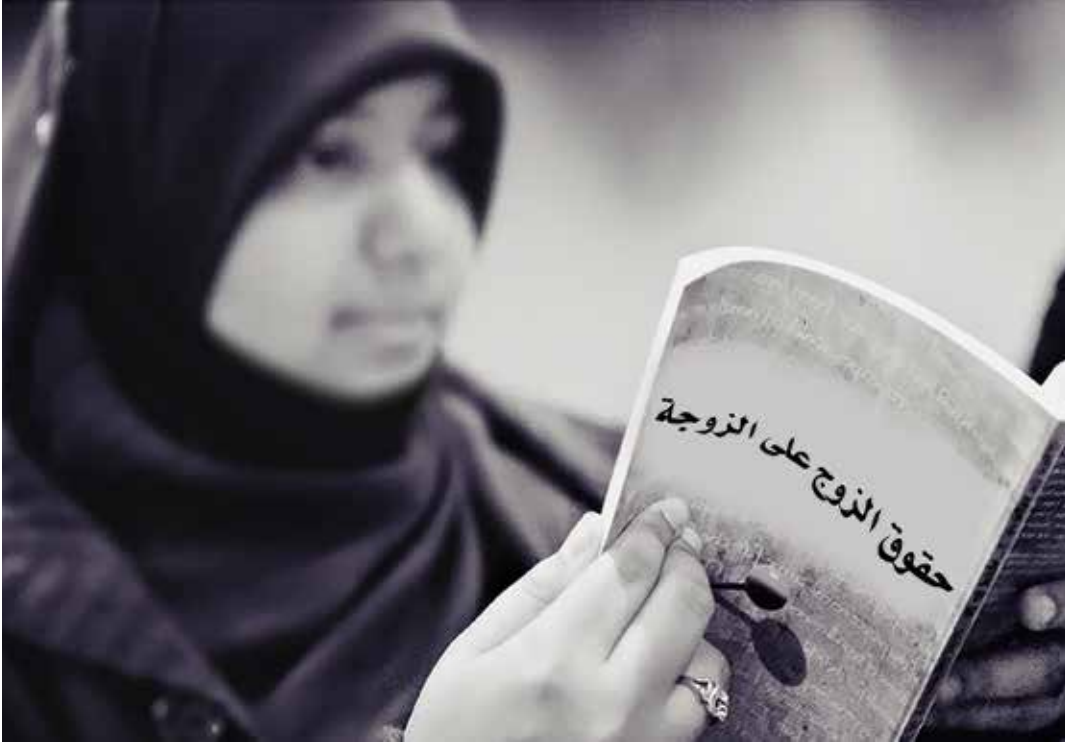 حقوق الزوج على الزوجة